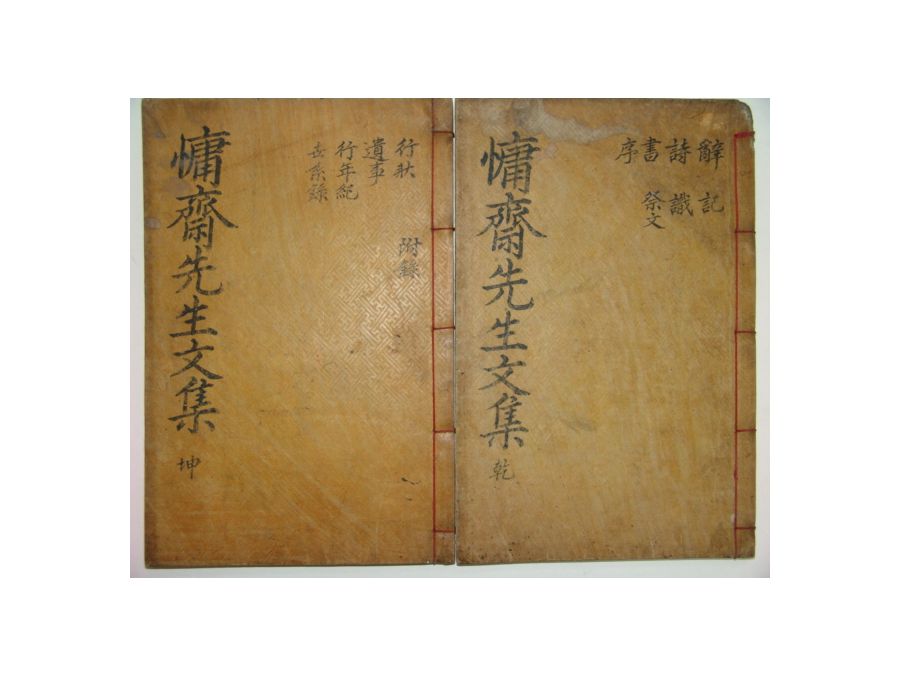 辭 記
詩 識
書 祭文
序
慵齋先生文集 乾
行狀 附錄
遺事
行年紀
世系錄
慵齋先生文集 坤